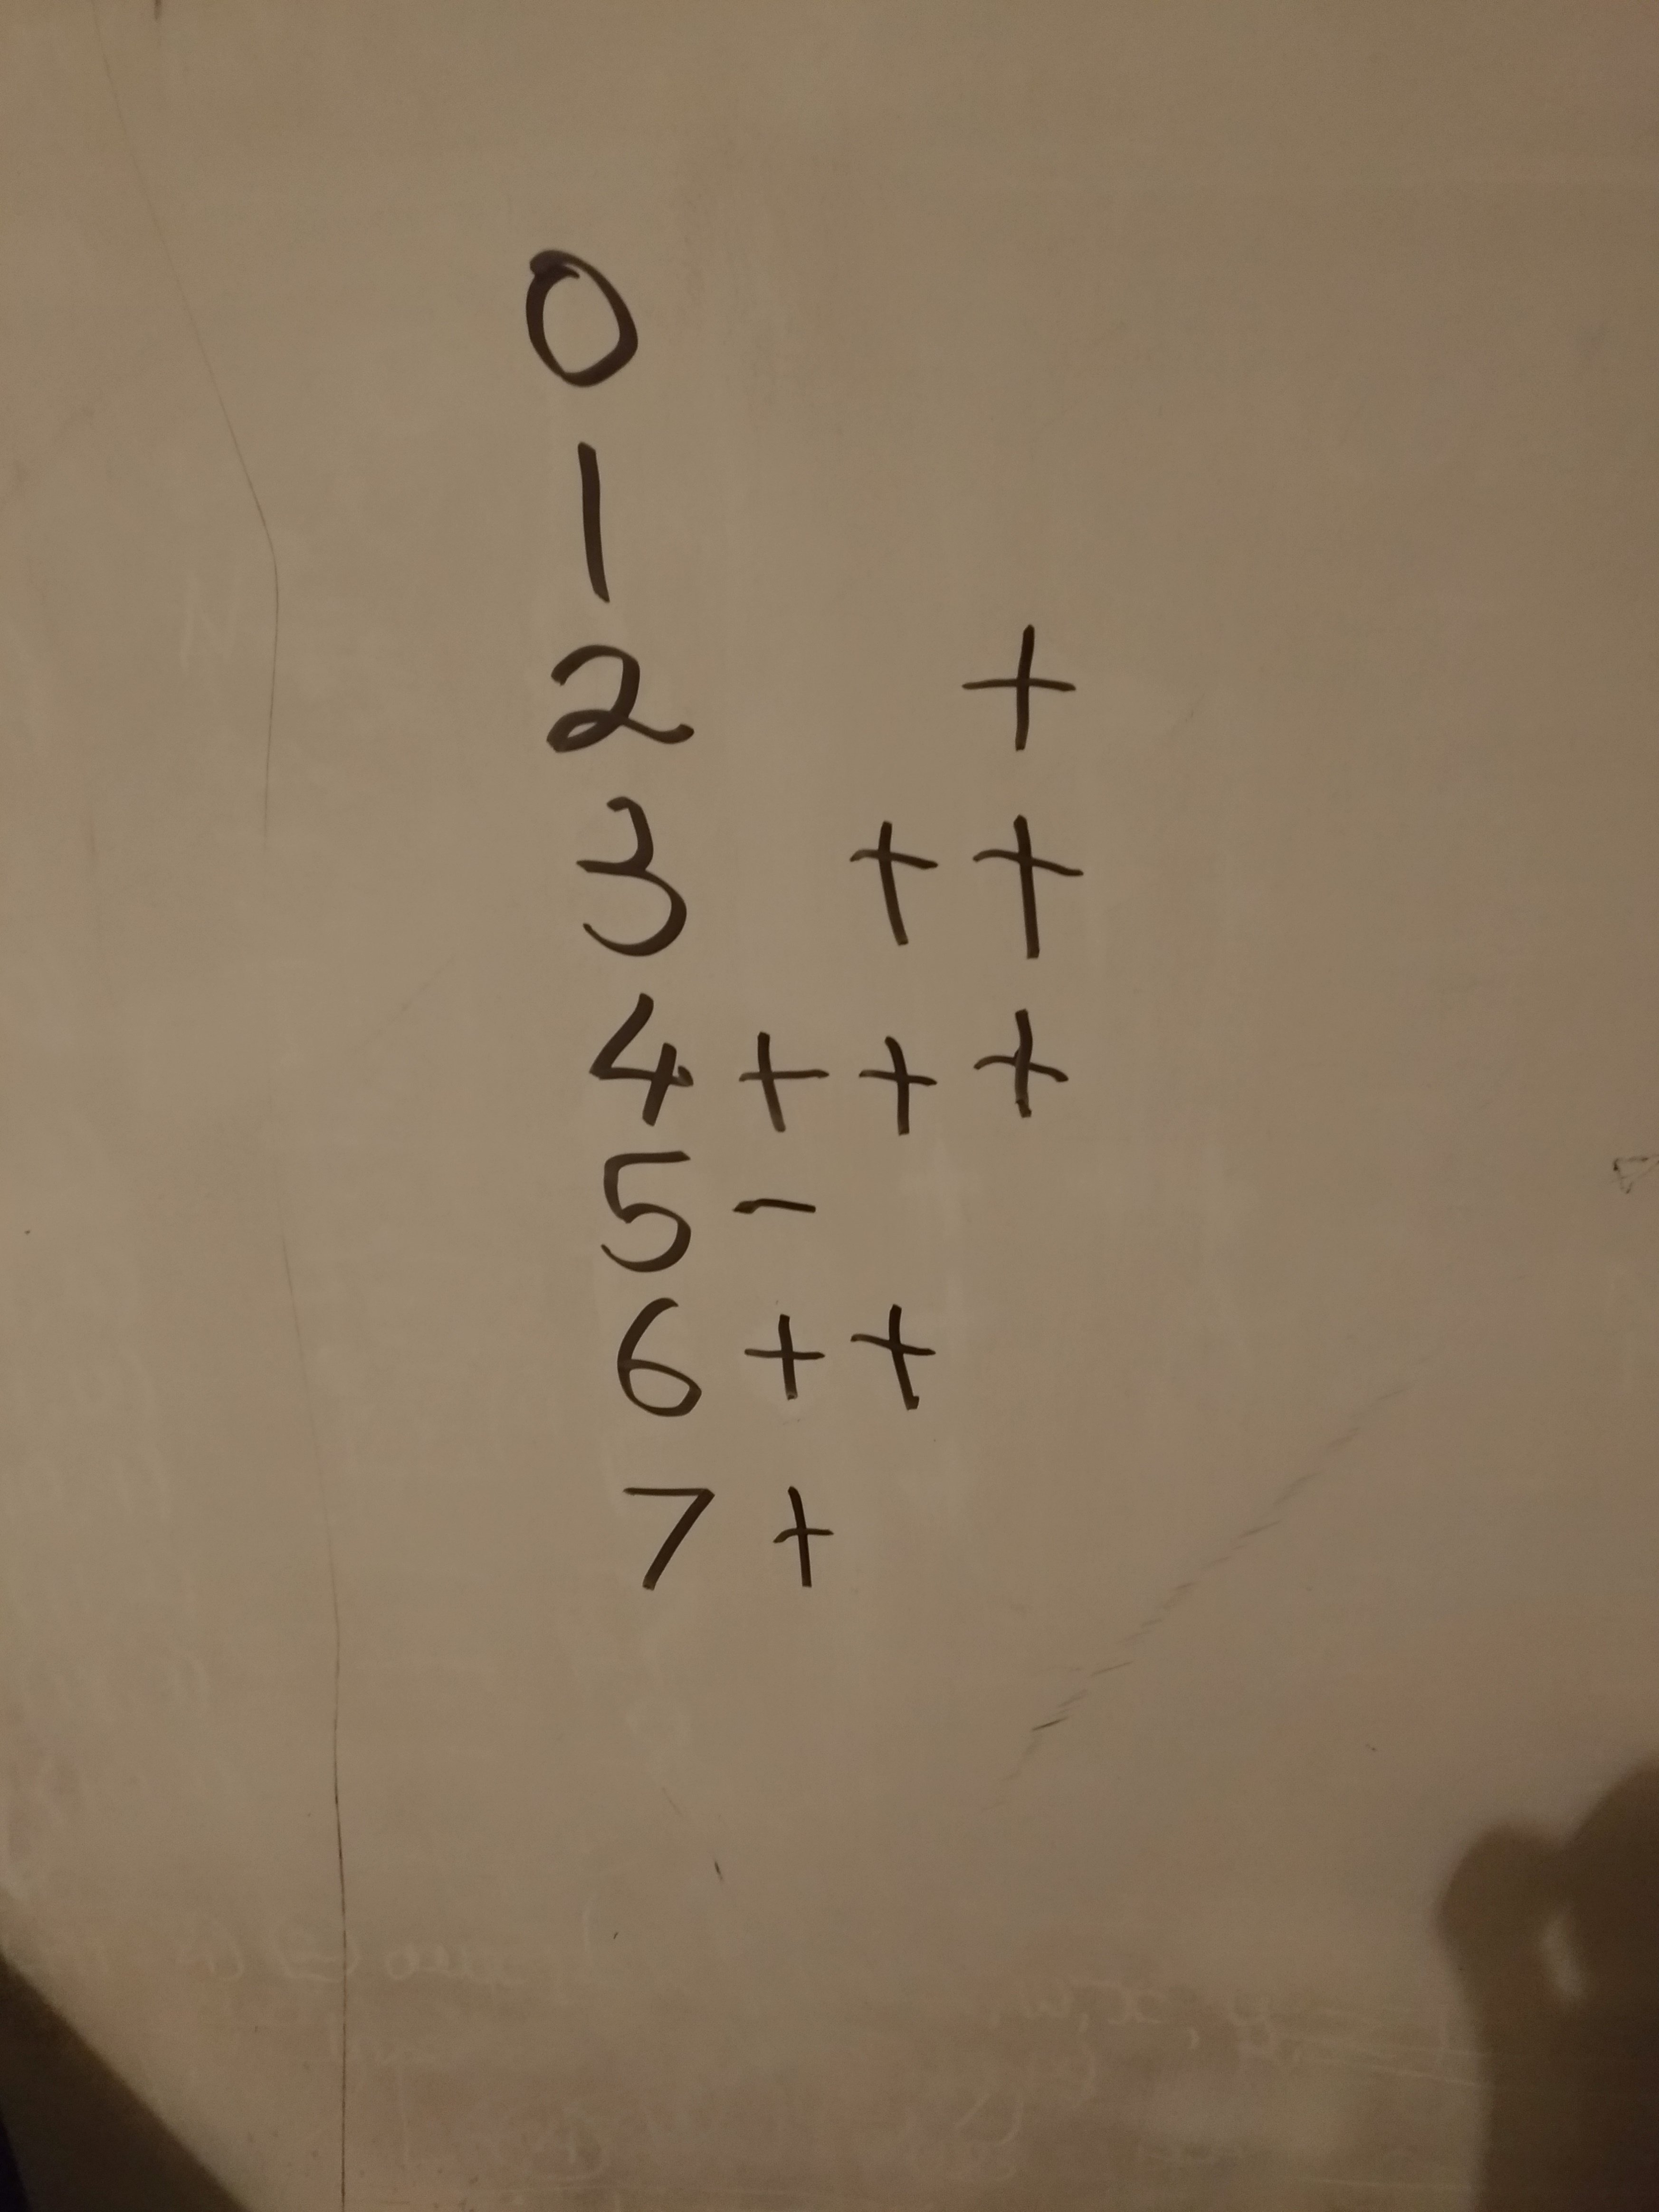 0
1
2 +
3 + +
4 + + +
5 -
6 + +
7 +